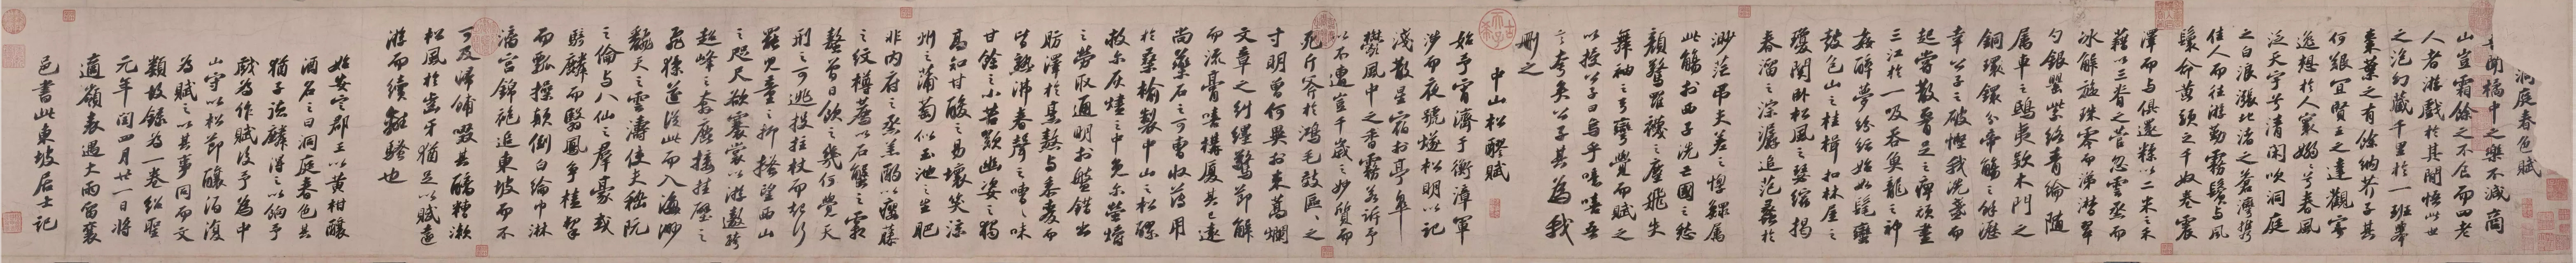 洞庭春色賦
吾聞橘中之樂不減商
山豈霜餘之不食而四老
人者游戲於其間悟此世
之泡幻藏千里於一班舉
棗葉之有餘納芥子其
何艱宜賢王之達觀寄
逸想於人寰嫋兮春風
泛天宇兮清閑吹洞庭
之白浪漲北渚之蒼灣攜
佳人而往游勤霧鬢與風
鬟命黃頭之千奴卷震
澤而與俱還糅以二米之禾
藉以三脊之菅忽雲烝而
冰解旋珠零而涕潸翠
勺銀罌紫絡青綸隨
屬車之鴟夷款木門之
銅鐶分帝觴之餘瀝
幸公子之破慳我洗盞而
起嘗散腰足之痹頑盡
三江於一吸吞魚龍之神
姦醉夢紛紜始如髦蠻
鼓包山之桂楫扣林屋之
瓊關臥松風之瑟縮揭
春溜之淙潺追范蠡於
渺茫弔夫差之惸鰥屬
此觴於西子洗亡國之愁
顏驚羅襪之塵飛失
舞袖之弓彎覺而賦之
以授公子曰烏乎噫嘻吾
言夸矣公子其為我
刪之
中山松醪賦
始予宵濟於衡漳軍
涉而夜號燧松明以記
淺散星宿於亭皋
鬱風中之香霧若訴予
以不遭豈千歲之妙質而
死斤斧於鴻毛效區區之
寸明曾何異於束蒿爛
文章之糾纆驚節解
而流膏嘻構廈其已遠
尚藥石之可曹收薄用
於桑榆製中山之松醪
救爾灰燼之中免爾螢爝
之勞取通明於盤錯出
肪澤於烹熬與黍麥而
皆熟沸舂聲之嘈嘈味
甘餘之小苦歎幽姿之獨
高知甘酸之易壞笑涼
州之蒲萄似玉池之生肥
非內府之烝羔酌以癭藤
之紋樽薦以石蟹之霜
螯曾日飲之幾何覺天
刑之可逃投拄杖而起行
罷兒童之抑搔望西山
之咫尺欲褰裳以游遨跨
超峰之奔鹿接挂壁之
飛猱遂從此而入海渺
翻天之雲濤使夫嵇阮
之倫與八仙之羣豪或
騎麟而翳鳳爭榼挈
而瓢操顛倒白綸巾淋
漓宮錦袍追東坡而不
可及歸餔歠其醨糟漱
松風於齒牙猶足以賦遠
游而續離騷也
始安定郡王以黃柑釀
酒名之曰洞庭春色其
猶子德麟得之以餉予
戲為作賦後予為中
山守以松節釀酒復
為賦之以其事同而文
類故錄為一卷紹聖
元年閏四月廿一日將
適嶺表遇大雨留襄
邑書此東坡居士記